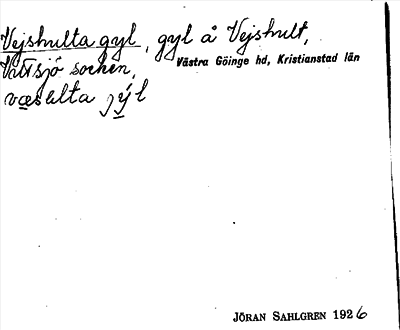 Vejshulta gyl, gyl å Vejshult,
Vittsjö socken,
Västra Göinge hd, Kristianstad län
jý̲l
JÖRAN SAHLGREN 1926